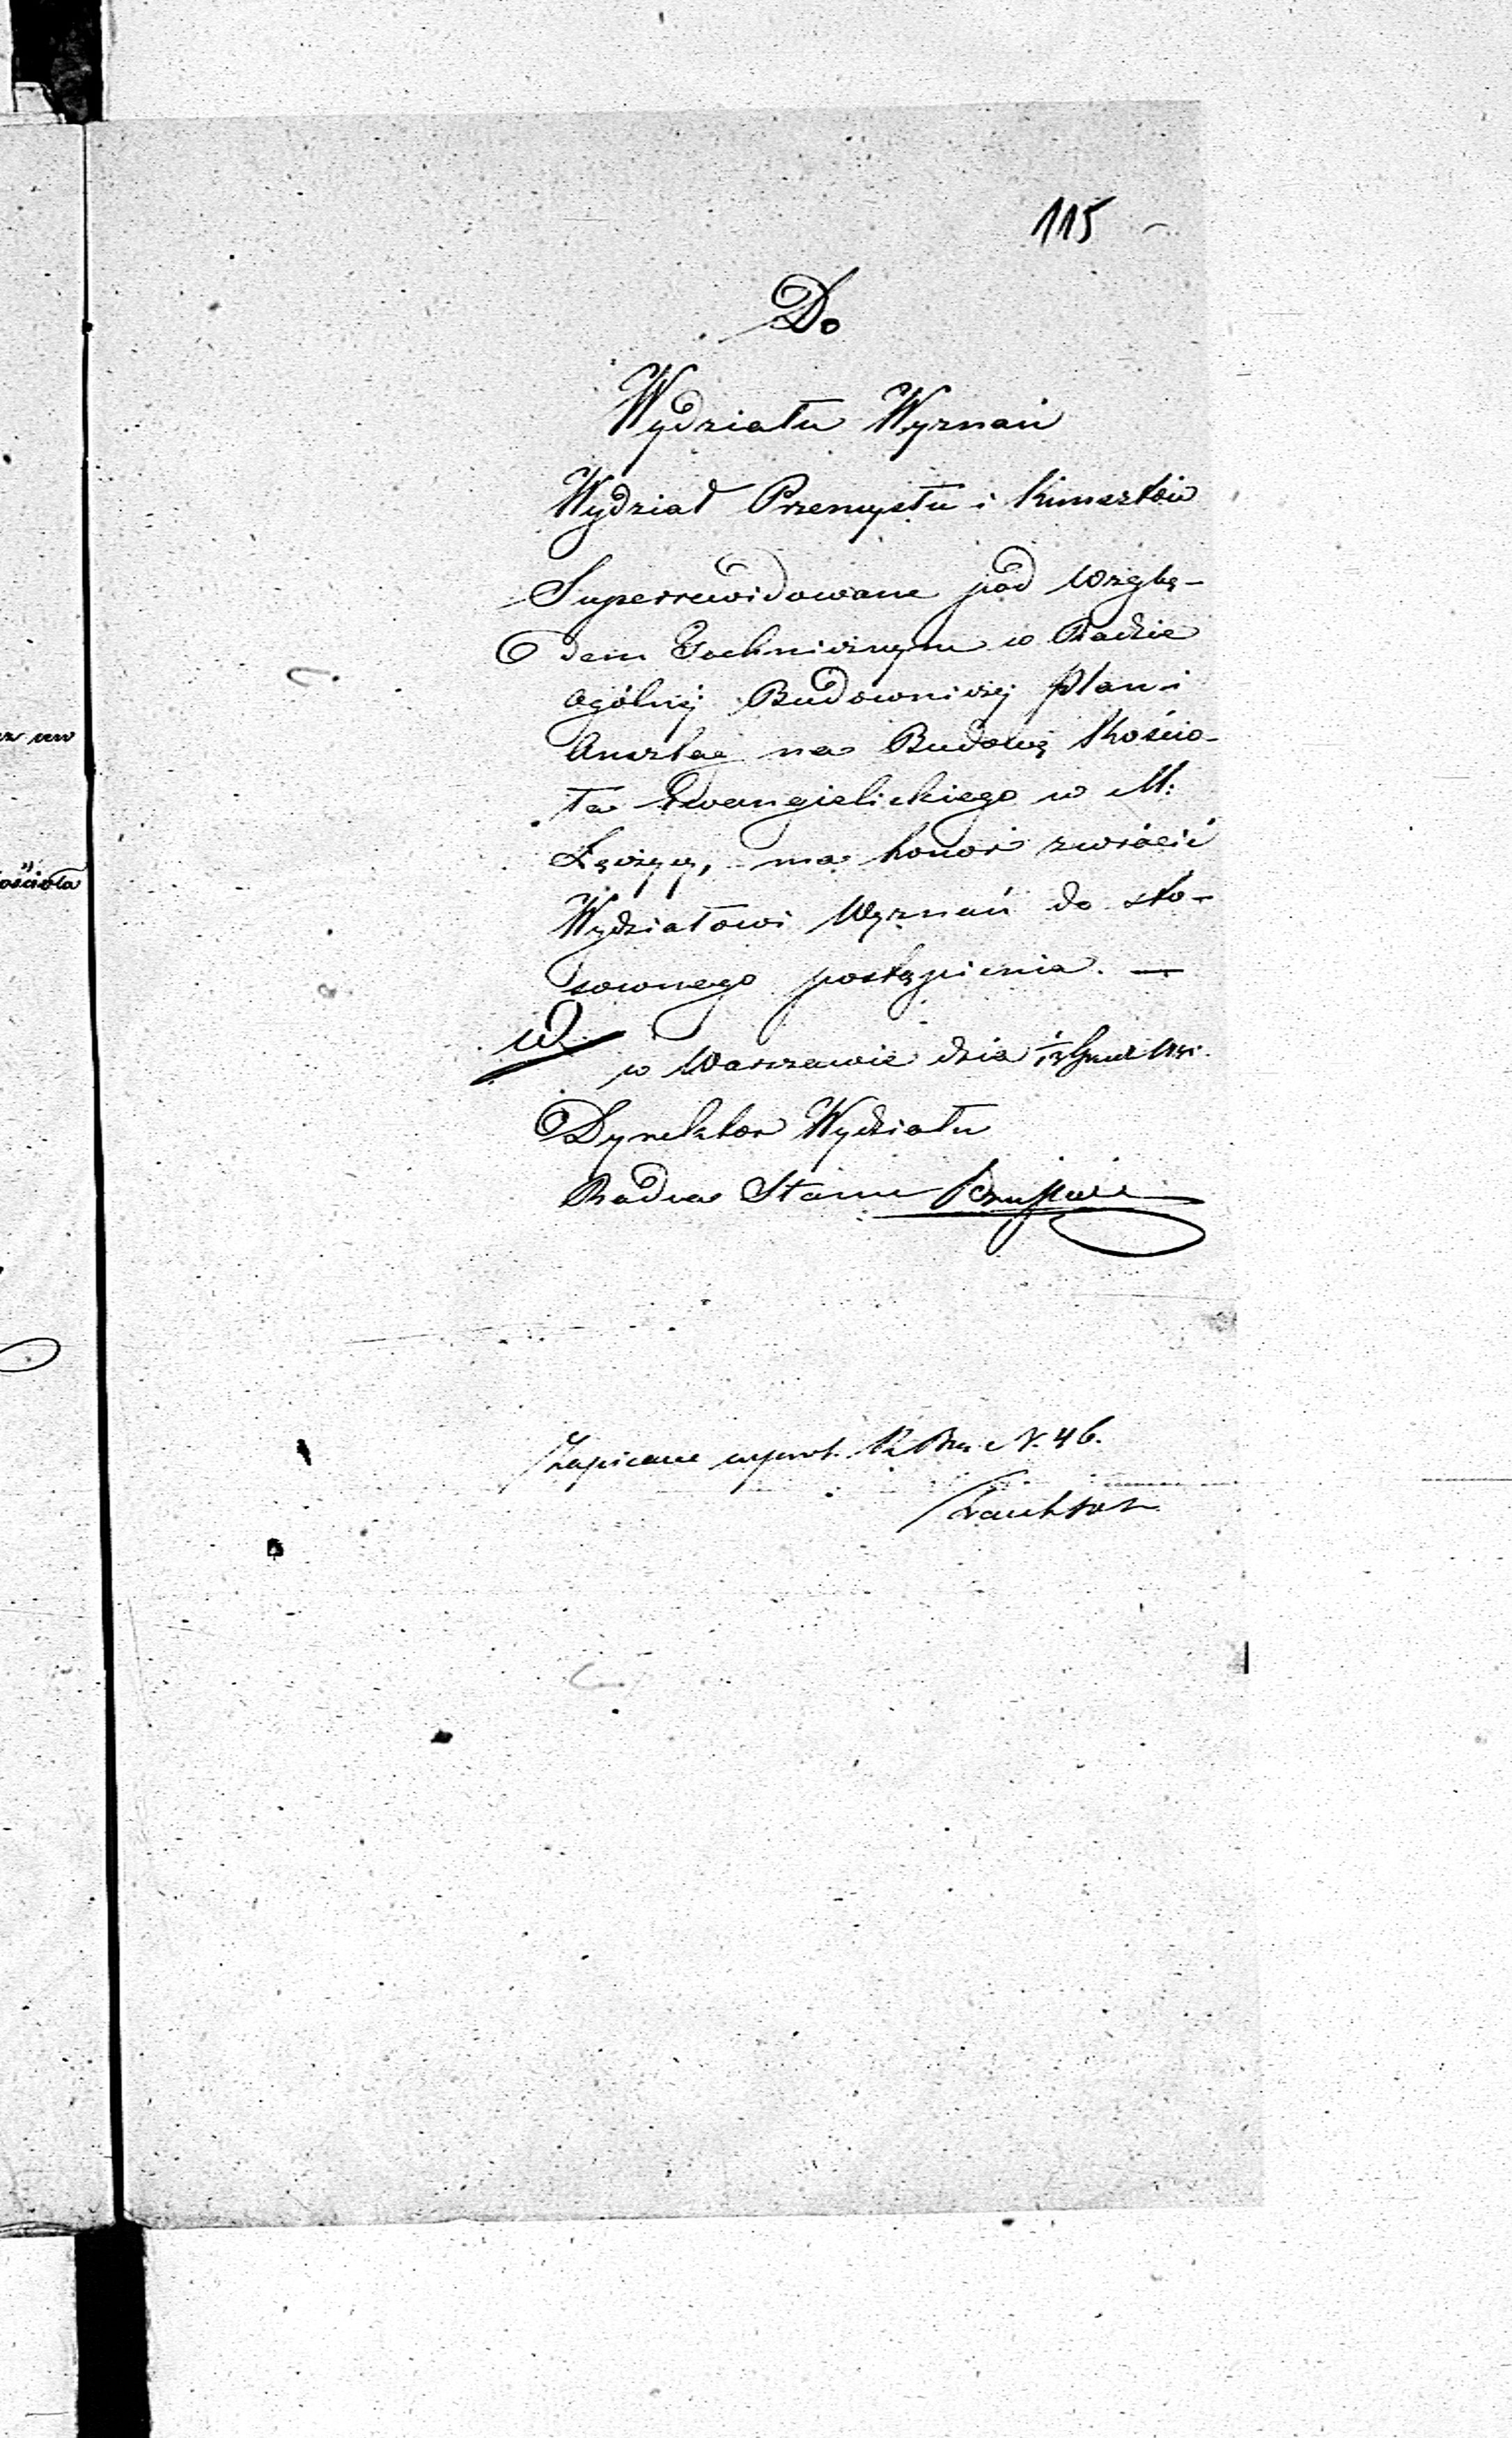 115
Do
Wydziału Wyznań
Wydział Przemysłu i Kunsztów
Superrewidowane pod wzglę-
dem Technicznym w Radzie
Ogólnéj Budowniczej plan i
Anszlag na Budowę Kościo-
ła Ewangielickiego w M:
Łęczycy, ma honor zwrócić
Wydziałowi Wyznań do sto-
sownego postąpienia. —
w Warszawie dnia 1/13
Dyrektor Wydziału
Radca Stanu
Zapisane N. 46.
ościoła